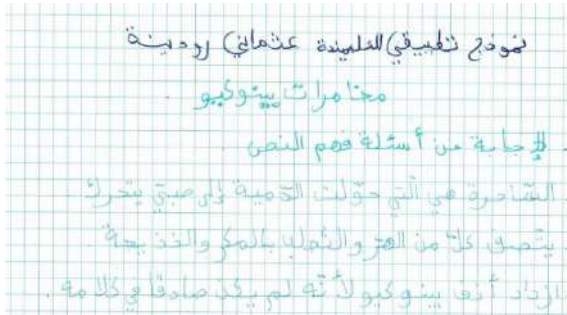 نموذج تطبيقي للتلميذة عثماني رودينة
مغامرات بينوكيو .
الإجابة عن أسئلة فهم النص
. الساحرة هي التي حوّلت الدّمية إلى صبيّ يتحرك
. يتصف كلّ من الهر والثعلب بالمكر والخديعة .
. ازداد أنف بينوكيو لأنّه لم يكن صادقا في كلامه .